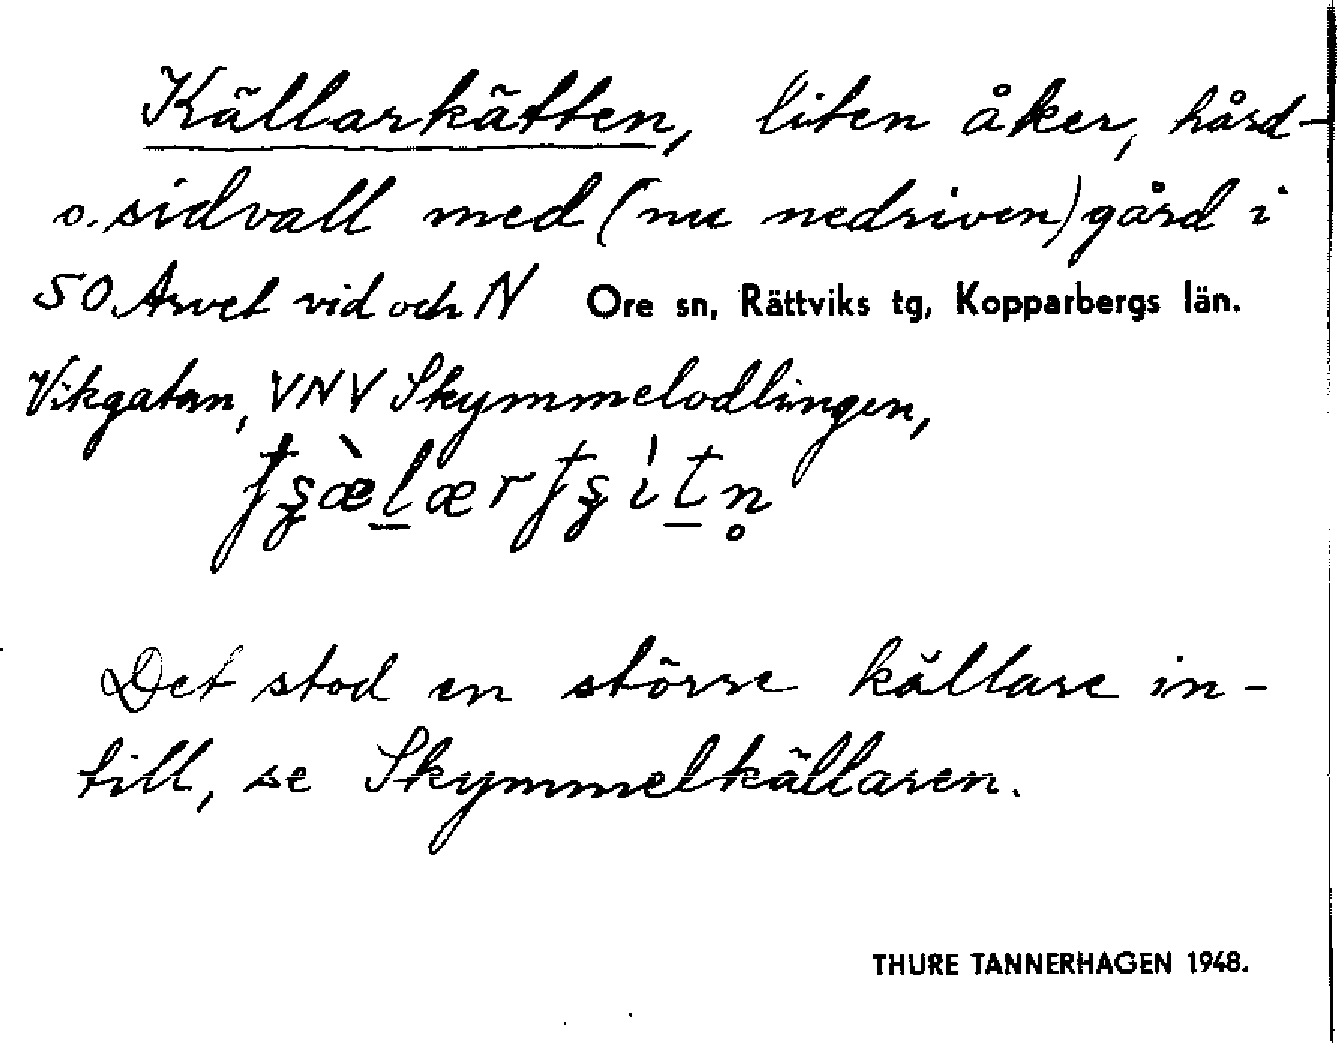 Källarkätten, liten åker, hård-
o. sidvall med (nu nedriven) gård i
SO. Arvet vid och N Ore sn, Rättviks tg, Kopparbergs län.
Vikgatan, VNV Skymmelodlingen,
Det stod en större källare in-
till, se Skymmelkällaren.
THURE TANNERHAGEN 1948.